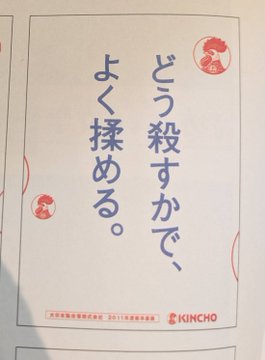 どう殺すかで、
よく揉める。
大日本除虫菊株式会社 2011年度
KINCHO